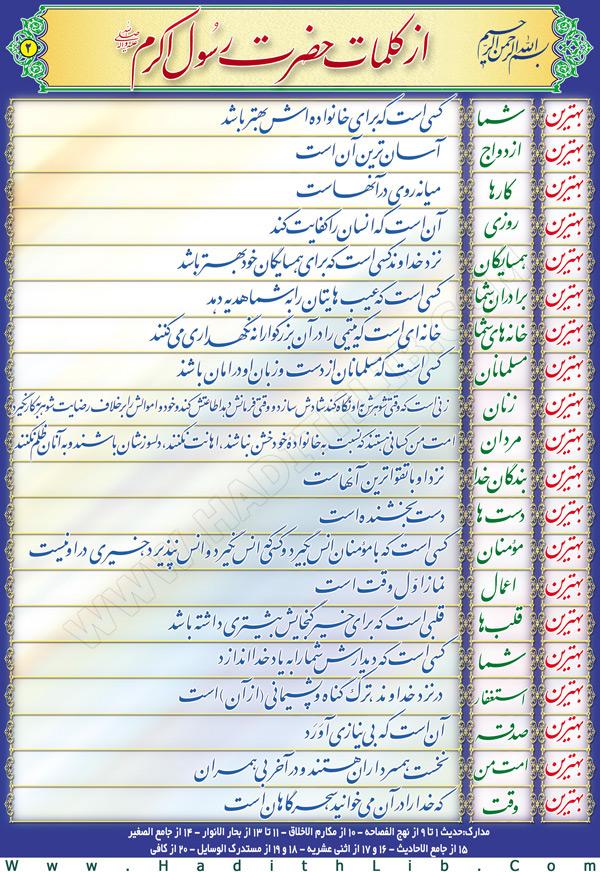 بسم الله الرحمن الرحیم
از کلمات حضرت رسول اکرم
۴
بهترین شما کسی است که برای خانواده اش بهتر باشد
بهترین ازدواج آسان ترین آن است
بهترین کارها میانه روی در آنهاست
بهترین روزی آن است که انسان را کفایت کند
بهترین همسایگان نزد خداوند کسی است که برای همسایگان خود بهتر باشد
بهترین برادران شما کسی است که عیب هایتان را به شما هدیه دهد
بهترین خانه های شما خانه ای است که یتیمی را در آن بزرگوارانه نگهداری می کنند
بهترین مسلمانان کسی است که مسلمانان از دست و زبان او در امان باشند
بهترین زنان زنی است که وقتی شوهرش به او نگاه کند شادش سازد و وقتی فرمانش دهد اطاعتش کند و خود و اموالش را بر خلاف رضایت شوهر به کار نگیرد
بهترین مردان امت من کسانی هستند که نسبت به خانواده خود خشن نباشند، اهانت نکنند، دلسوزشان باشند و به آنان ظلم نکنند
بهترین بندگان خدا نزد او با تقواترین آنهاست
بهترین دست ها دست بخشنده است
بهترین مؤمنان کسی است که با مؤمنان انس گیرد و کسی که انس نگیرد و انس نپذیرد خیری در او نیست
بهترین اعمال نماز اول وقت است
بهترین قلب ها قلبی است که برای خیر گنجایش بیشتری داشته باشد
بهترین شما کسی است که دیدارش شما را به یاد خدا اندازد
بهترین استغفار در نزد خداوند ترک گناه و پشیمانی (از آن) است
بهترین صدقه آن است که بی نیازی آورد
بهترین امت من نخست همسرداران هستند و در آخر بی همسران
بهترین وقت که خدا را در آن می خوانید سحرگاهان است
مدارک:حدیث ۱ تا ۹ از نهج الفصاحه - ۱۰ از مکارم الاخلاق - ۱۱ تا ۱۳ از بحار الانوار - ۱۴ از جامع الصغیر
۱۵ از جامع الاحادیث - ۱۶ و ۱۷ از اثنی عشریه - ۱۸ و ۱۹ از مستدرک الوسایل - ۲۰ از کافی
Www.HadithLib.Com